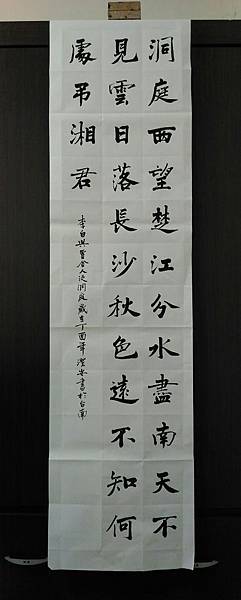 洞庭西望楚江分水盡南天不
見雲日落長沙秋色遠不知何
處吊湘君
李白與賈舍人泛洞庭歲在丁酉年 澄安書於台南